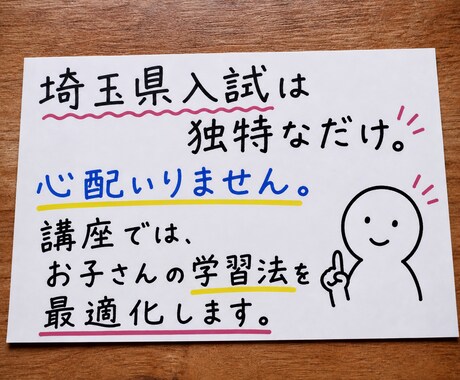 埼玉県入試は
独特なだけ。
心配いりません。
講座では、
お子さんの学習法を
最適化します。